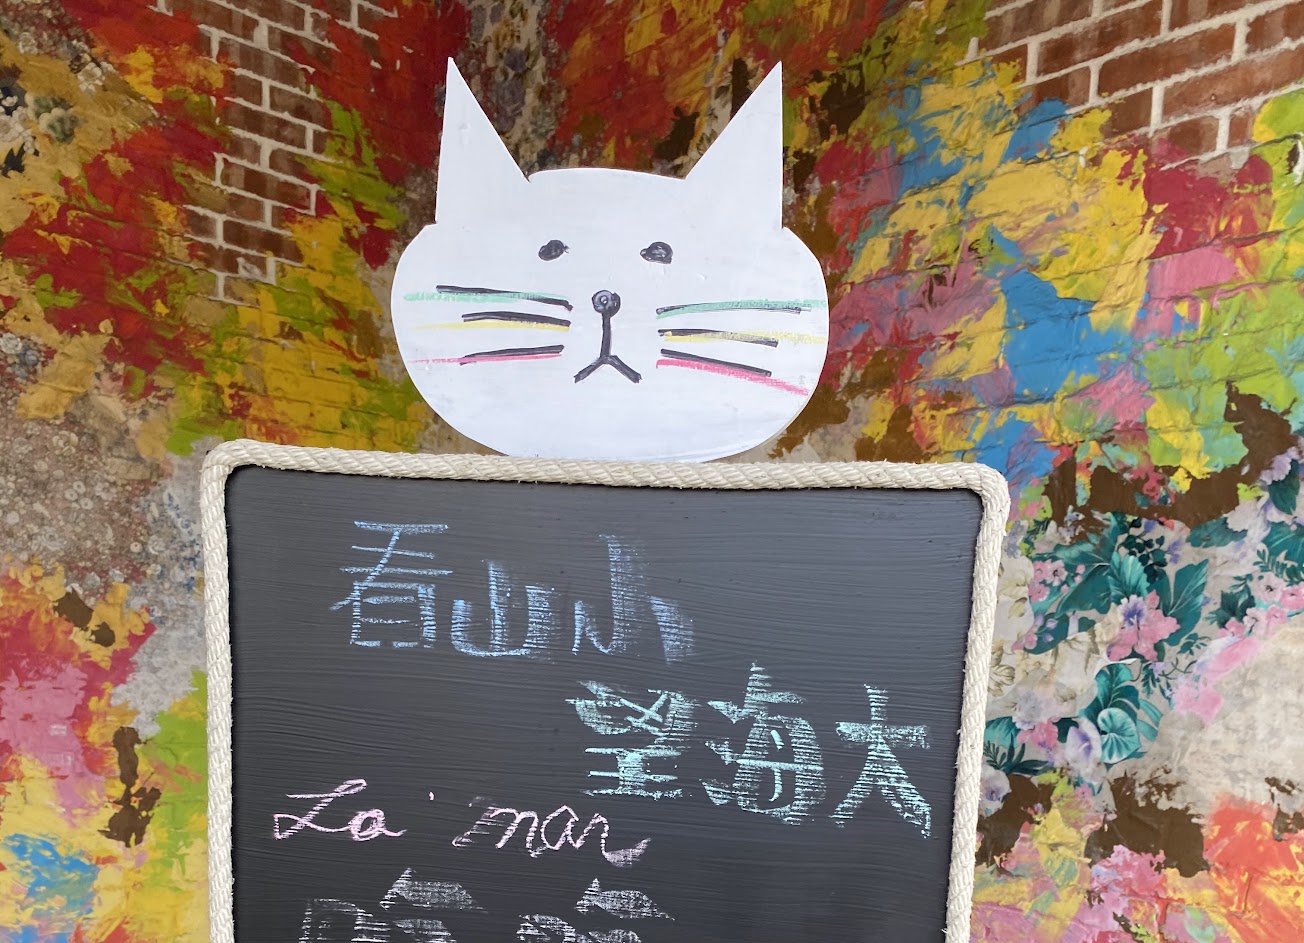 看山小
望海大
La' mar